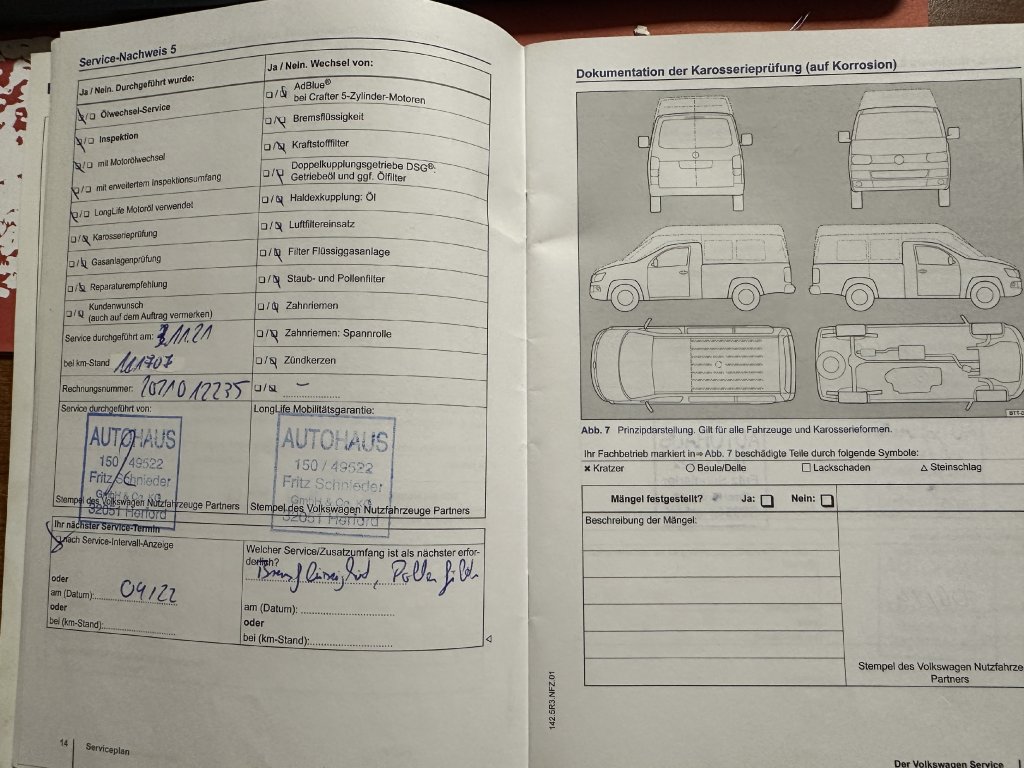 Service-Nachweis 5
Ja / Nein. Durchgeführt wurde:
Ölwechsel-Service
Inspektion
mit Motorölwechsel
mit erweitertem Inspektionsumfang
LongLife Motoröl verwendet
Karosserieprüfung
Gasanlagenprüfung
Reparaturempfehlung
Kundenwunsch
(auch auf dem Auftrag vermerken)
Service durchgeführt am: 11.21
bei km-Stand 111707
Rechnungsnummer: 2021012235
Service durchgeführt von:
AUTOHAUS
150 / 49522
Fritz Schnieder
GmbH & Co. KG
32051 Herford
Stempel des Volkswagen Nutzfahrzeuge Partners
Ja / Nein. Wechsel von:
AdBlue®
bei Crafter 5-Zylinder-Motoren
Bremsflüssigkeit
Kraftstofffilter
Doppelkupplungsgetriebe DSG®:
Getriebeöl und ggf. Ölfilter
Haldexkupplung: Öl
Luftfiltereinsatz
Filter Flüssiggasanlage
Staub- und Pollenfilter
Zahnriemen
Zahnriemen: Spannrolle
Zündkerzen
–
LongLife Mobilitätsgarantie:
AUTOHAUS
150 / 49522
Fritz Schnieder
GmbH & Co. KG
32051 Herford
Stempel des Volkswagen Nutzfahrzeuge Partners
Ihr nächster Service-Termin
nach Service-Intervall-Anzeige
oder
am (Datum): 04/22
oder
bei (km-Stand):
Welcher Service/Zusatzumfang ist als nächster erfor-
derlich?
Bremsflüssigkeit, Pollenfilter
am (Datum):
oder
bei (km-Stand):
14 Serviceplan
Dokumentation der Karosserieprüfung (auf Korrosion)
Abb. 7 Prinzipdarstellung. Gilt für alle Fahrzeuge und Karosserieformen.
Ihr Fachbetrieb markiert in ⇒ Abb. 7 beschädigte Teile durch folgende Symbole:
× Kratzer ○ Beule/Delle □ Lackschaden △ Steinschlag
Mängel festgestellt? Ja: Nein:
Beschreibung der Mängel:
Stempel des Volkswagen Nutzfahrze
Partners
142.5R3.NFZ.01
Der Volkswagen Service